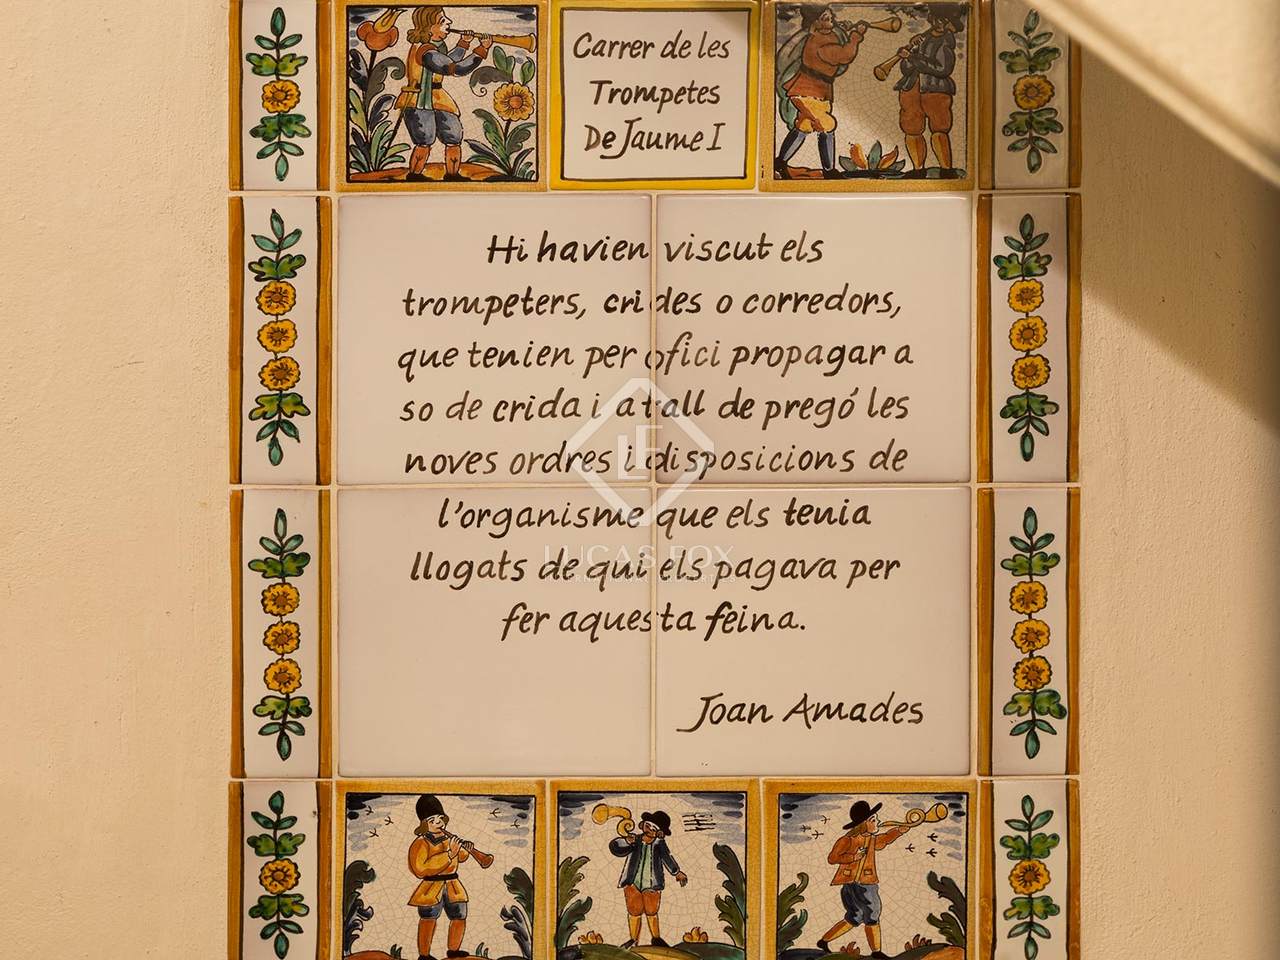 Carrer de les
Trompetes
De Jaume I
Hi havien viscut els
trompeters, crides o corredors,
que tenien per ofici propagar a
so de crida i a tall de pregó les
noves ordres i disposicions de
l'organisme que els tenia
llogats de qui els pagava per
fer aquesta feina.
Joan Amades
LF
LUCAS FOX
INTERNATIONAL PROPERTIES